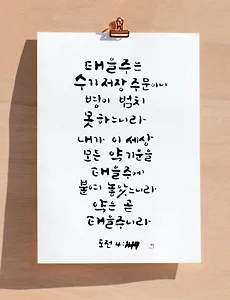 태을주는
수기저장 주문이니
병이 범치
못하느니라
내가 이 세상
모든 약기운을
태을주에
붙여 놓았느니라
약은 곧
태을주니라
도전 4: